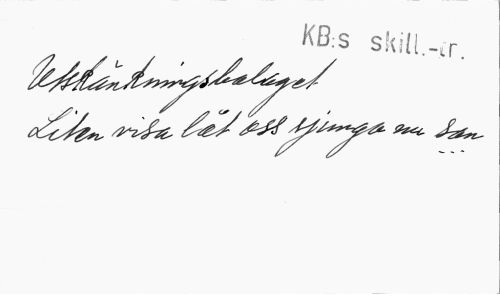 KB:s skill.-tr.
Utskänkningsbolaget
Liten visa låt oss sjunga nu san
...